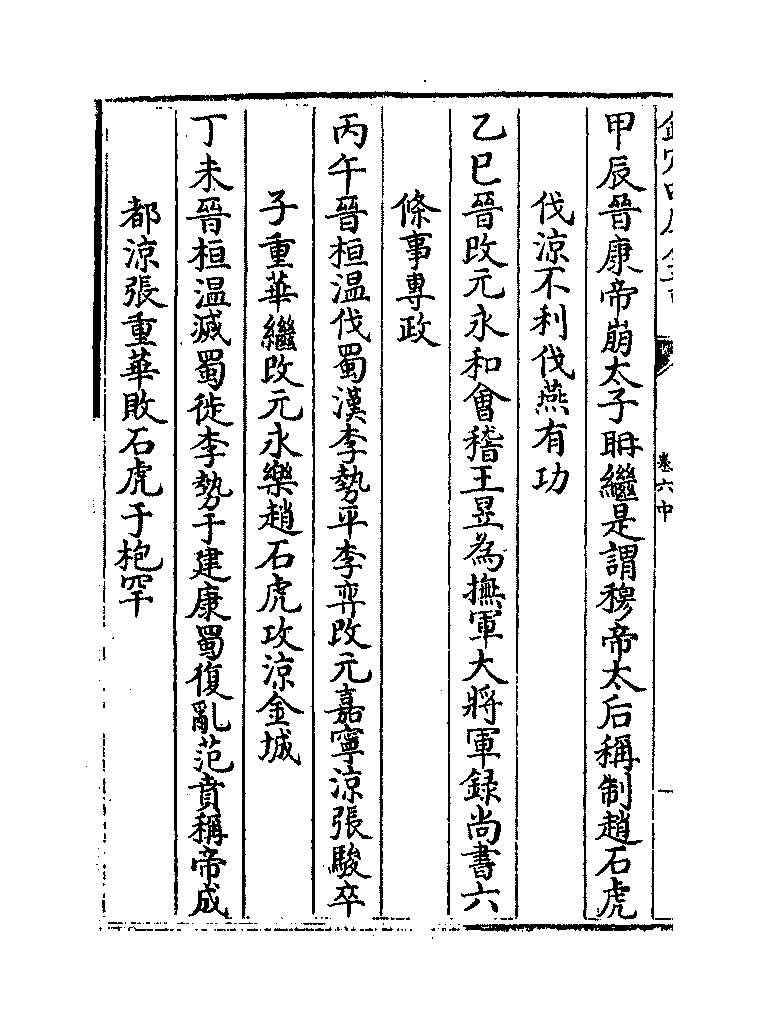 欽定四庫全書
卷六中
甲辰晉康帝崩太子聃繼是謂穆帝太后稱制趙石虎
伐涼不利伐燕有功
乙巳晉改元永和會稽王昱為撫軍大將軍録尚書六
條事專政
丙午晉桓温伐蜀漢李勢平李弈改元嘉寧涼張駿卒
子重華繼改元永樂趙石虎攻涼金城
丁未晉桓温滅蜀徙李勢于建康蜀復亂范賁稱帝成
都涼張重華敗石虎于枹罕